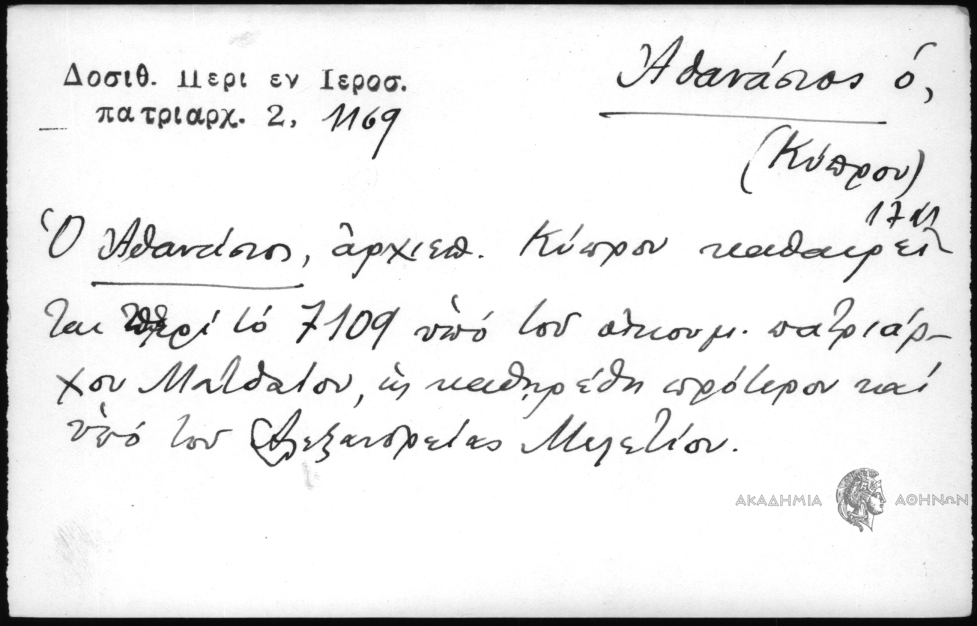 Δοσιθ. Περι εν Ιεροσ.
πατριαρχ. 2, 1169
Ἀθανάσιος ὁ,
(Κύπρου)
17 αι
Ὁ Ἀθανάσιος, ἀρχιεπ. Κύπρου καθαιρεῖ-
ται περί τό 7109 ὑπό του οἰκουμ. πατριάρ-
χου Ματθαίου, ὡς καθηρέθη πρότερον καί
ὑπό του Ἀλεξανδρείας Μελετίου.
ΑΚΑΔΗΜΙΑ ΑΘΗΝΩΝ